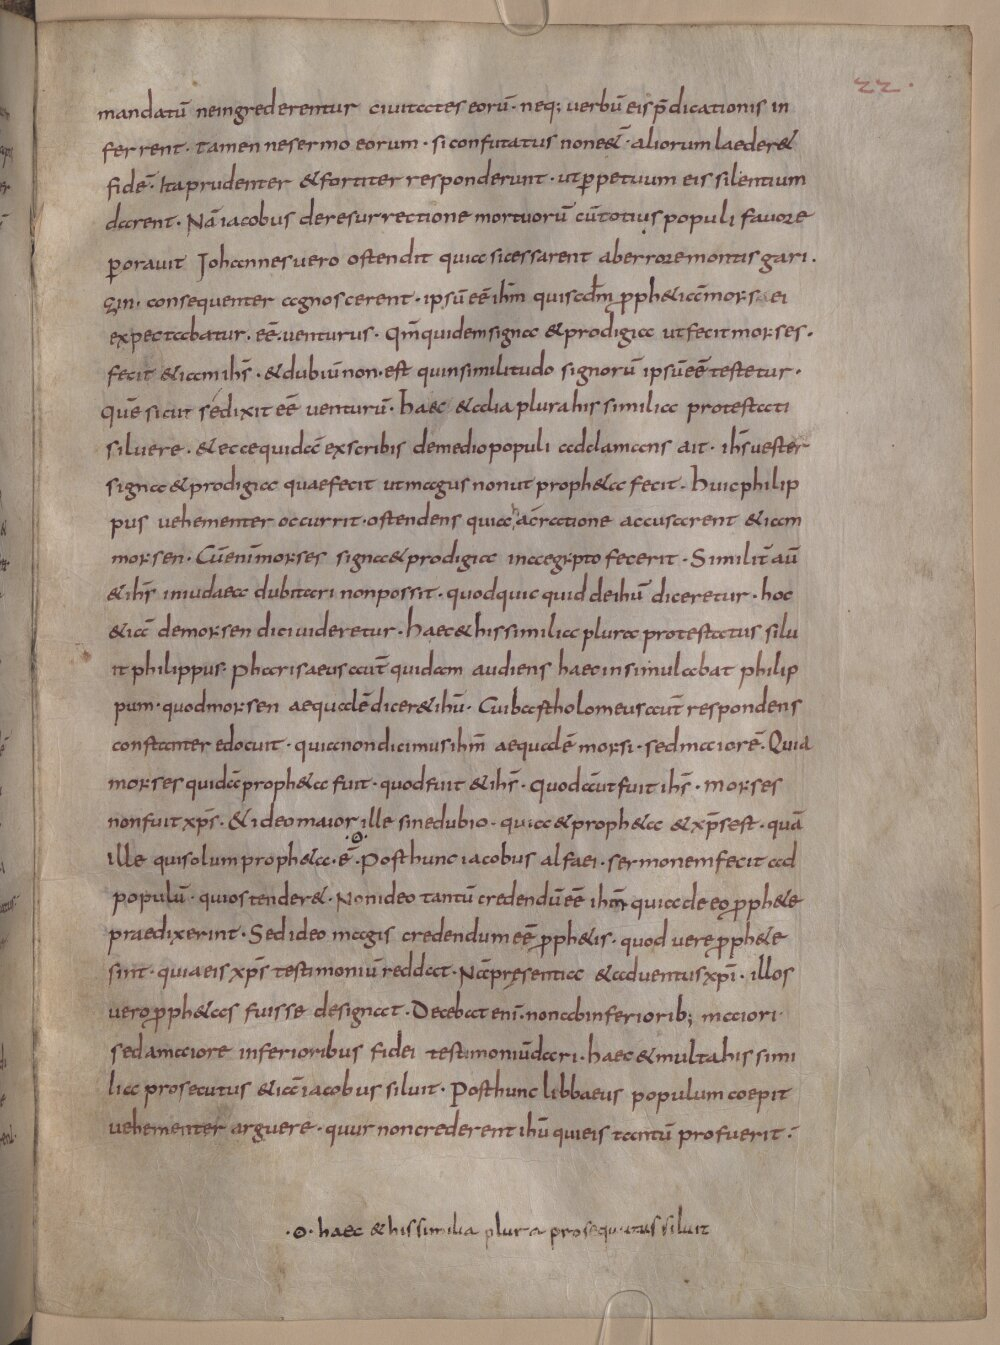 22.
mandatū neingrederentur civitates eorū· neq; verbū eis p̄dicationis in
ferrent· tamen ne sermo eorum· si confutatus non e&̄· aliorum laeder&
fidē· Ita prudenter & fortiter responderunt· ut ꝑpetuum eis silentium
darent· Nā iacobus de resurrectione mortuorū cū totius populi favore
ꝑoravit Johannes vero ostendit quia si cessarent ab errore montis gari·
zin· consequenter agnoscerent· ipsū eē ihm̄ qui scdm̄ ꝓph&iam morsei
expectabatur· eē· venturus· Qm̄ quidem signa & prodigia ut fecit morses·
fecit & iam ihs̄· & dubiū non· est quin similitudo signorū ipsū eē testetur·
quē sicut se dixit eē venturū· haec & alia plura his similia protestati
siluere· & ecce quidā ex scribis de medio populi adclamans ait· ihs̄ vester
signa & prodigia quae fecit ut magus non ut proph&a fecit· huic philip
pus vehementer occurrit· ostendens quia hac ratione accusarent & iam
morsen· Cū enī morses signa & prodigia in aegypto fecerit· Similit̄ aū
& ihs̄ in iudaea dubitari non possit· quod quicquid de ihū diceretur· hoc
& iā de morsen dici videretur· haec & his similia plura protestatus silu
it philippus· Pharisaeus aut̄ quidam audiens haec insimulabat philip
pum· quod morsen aequalē dicer& ihū· Cui bastholomeus aut̄ respondens
constanter edocuit· quia non dicimus ihm̄ aequalē morsi· sed maiorē· Quia
morses quidā proph&a fuit· quod fuit & ihs̄· Quod aut̄ fuit ihs̄· morses
non fuit xp̄s· & ideo maior ille sine dubio· quia & proph&a & xp̄s est· quā
ille qui solum proph&a· ē·̄ ·Θ· Post hunc iacobus alfaei· sermonem fecit ad
populū· qui ostender&· Non ideo tantū credendū eē ihm̄ quia de eo ꝓph&e
praedixerint· Sed ideo magis credendum eē ꝓph&is· quod vere ꝓph&e
sint· quia eis xp̄s testimoniū reddat· Nā presentia & adventus xp̄i· illos
vero ꝓph&as fuisse designat· Decebat enī· non ab inferiorib; maiori·
sed a maiore inferioribus fidei testimoniū dari· haec & multa his simi
lia prosecutus & iā iacobus siluit· Post hunc libbaeus populum coepit
vehementer arguere· quur non crederent ihū qui eis tantū profuerit·
·Θ· haec & his similia plura prosequutus siluit